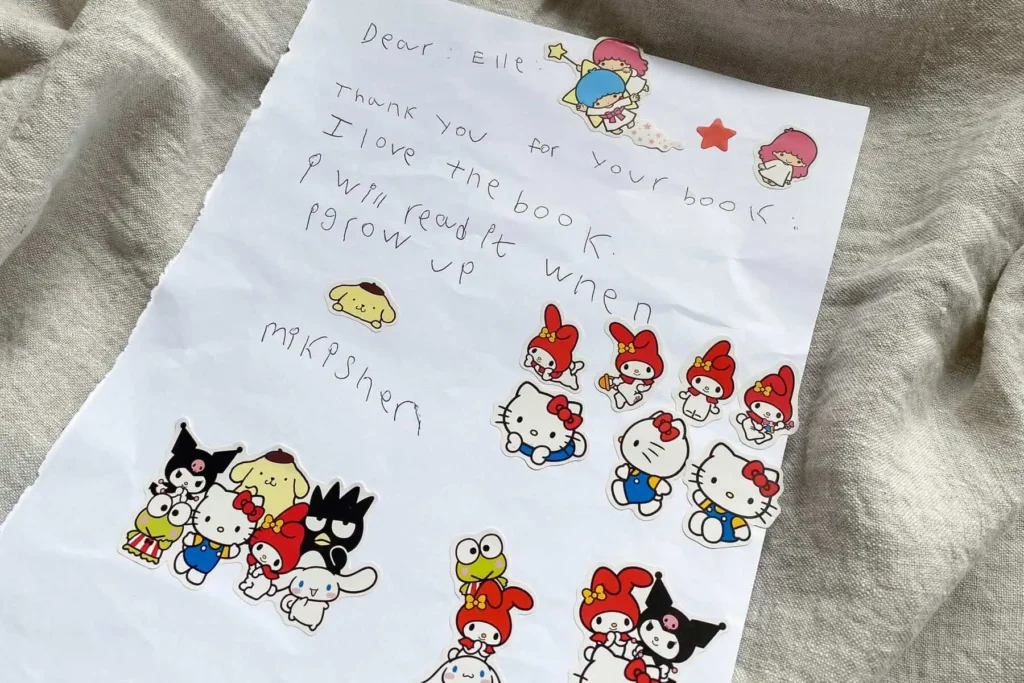 Dear: Elle:
Thank you for your book:
I love the book.
i will read it when
i grow up
mikishen